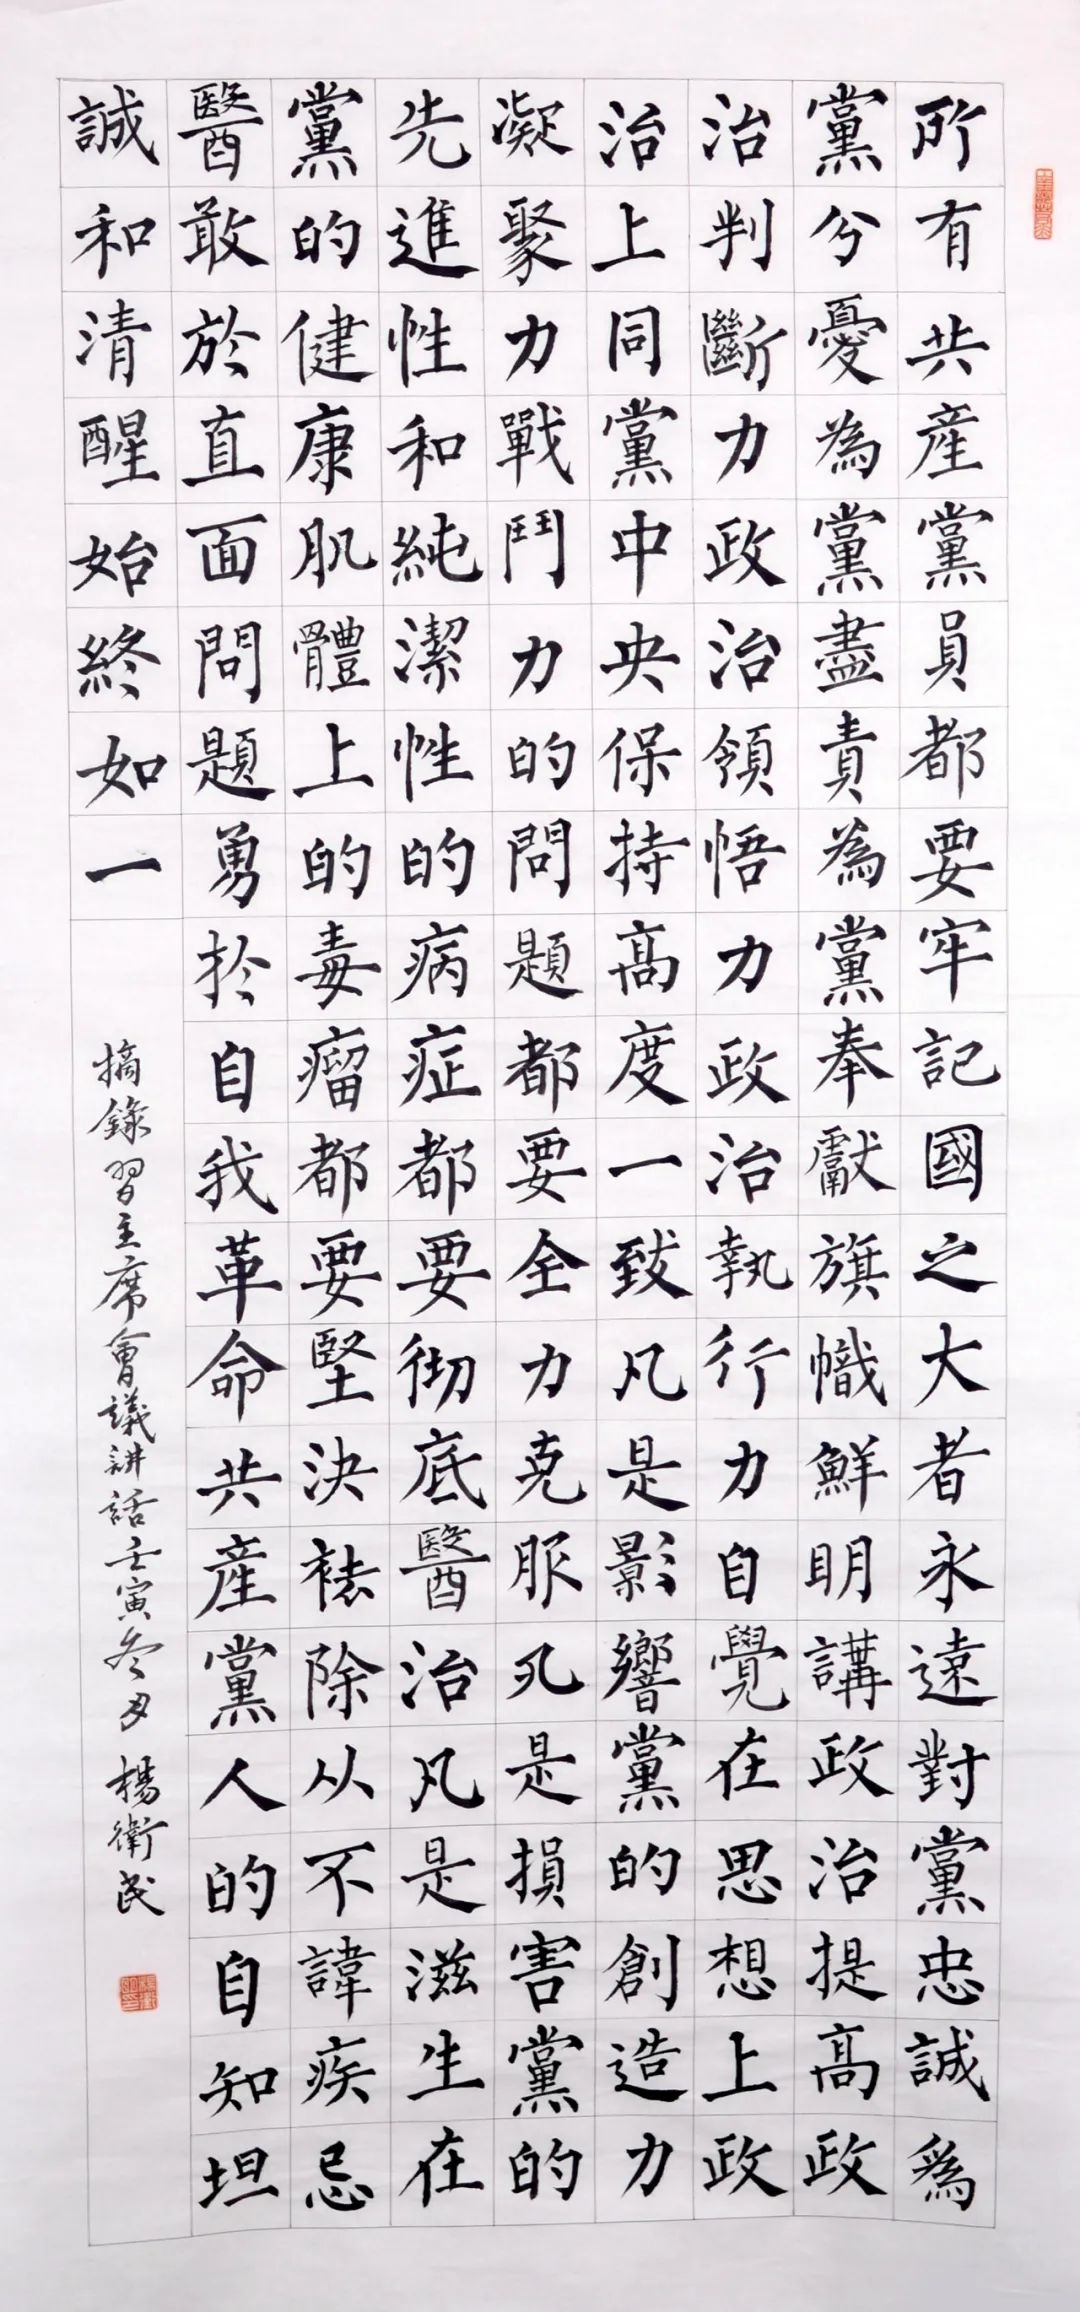 所有共産黨員都要牢記國之大者永遠對黨忠誠爲
黨兮憂為黨盡責為黨奉獻旗幟鮮明講政治提高政
治判斷力政治領悟力政治執行力自覺在思想上政
治上同黨中央保持高度一致凡是影響黨的創造力
凝聚力戰鬥力的問題都要全力克服凡是損害黨的
先進性和純潔性的病症都要彻底醫治凡是滋生在
黨的健康肌體上的毒瘤都要堅決祛除从不諱疾忌
醫敢於直面問題勇於自我革命共産黨人的自知坦
誠和清醒始終如一
摘錄習主席會議講話壬寅冬月楊衛民